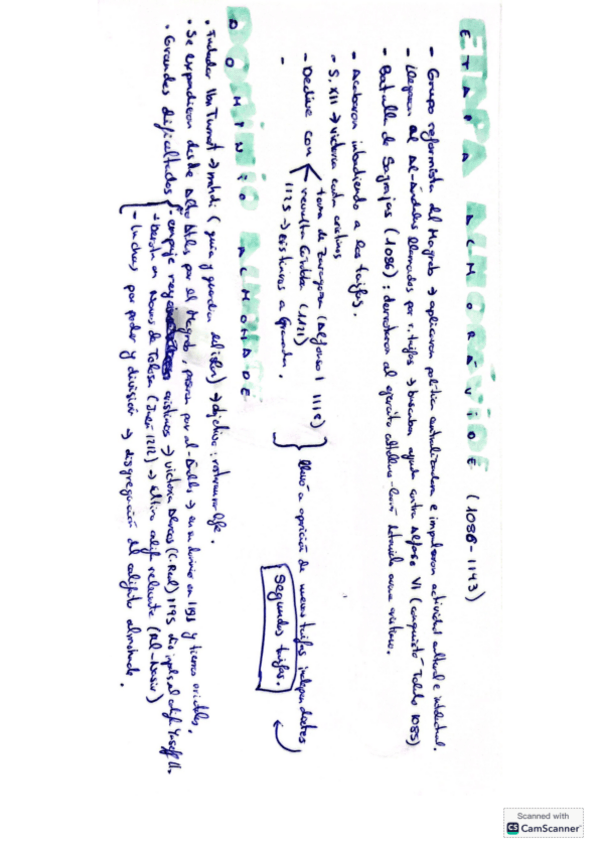 ETAPA ALMORÁVIDE (1086-1143)
- Grupo reformista del Magreb → aplicaron política centralizadora e impulsaron actividad cultural e intelectual.
- Llegaron al Al-Ándalus llamados por r. taifas → buscaban ayuda contra Alfonso VI (conquistó Toledo 1085)
- Batalla de Sagrajas (1086): derrotaron al ejército castellano-leonés
- Acabaron invadiendo a las taifas.
- S. XII → victoria contra cristianos
- Declive con toma de Zaragoza (Alfonso I 1118)
revuelta Córdoba (1121)
1125 → cristianos a Granada.
llevó a aparición de nuevas taifas independientes
Segundas taifas.
-
DOMINIO ALMOHADE
• Fundador Ibn Tumart → mahdi (guía y guarda el islam) → objetivo:
• Se expandieron desde Alto Atlas por el Magreb, pasan por al-Ándalus → en su dominio en 1195 y
• Grandes dificultades
- empuje reyes cristianos → victoria Alarcos (C. Real) 1195 califa Yusuf II.
- Derrota en Navas de Tolosa (Jaén 1212) → último califa relevante (Al-Nasir)
- Luchas por poder y división → disgregación del califato almohade.
Scanned with
CS CamScanner